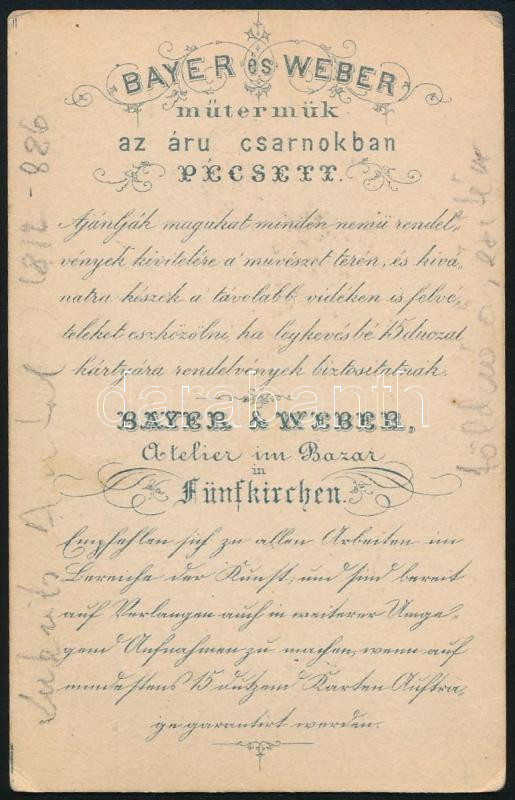 BAYER és WEBER
műtermük
az áru csarnokban
PÉCSETT.
Ajánlják magukat minden nemü rendel-
vények kivitelére a művészet terén, és kivá-
natra készek a távolabb vidéken is felvé-
teleket eszközölni, ha legkevésbé 15 duczat
kártyára rendelvények biztosítatnak.
darabanth
BAYER & WEBER,
Atelier im Bazar
in
Fünfkirchen.
Empfehlen sich zu allen Arbeiten im
Bereiche der Kunst, und sind bereit
auf Verlangen auch in weiterer Umge-
gend Aufnahmen zu machen, wenn auf
mindestens 15 dutzend Karten Aufträ-
ge garantirt werden.
Antal 1812-886